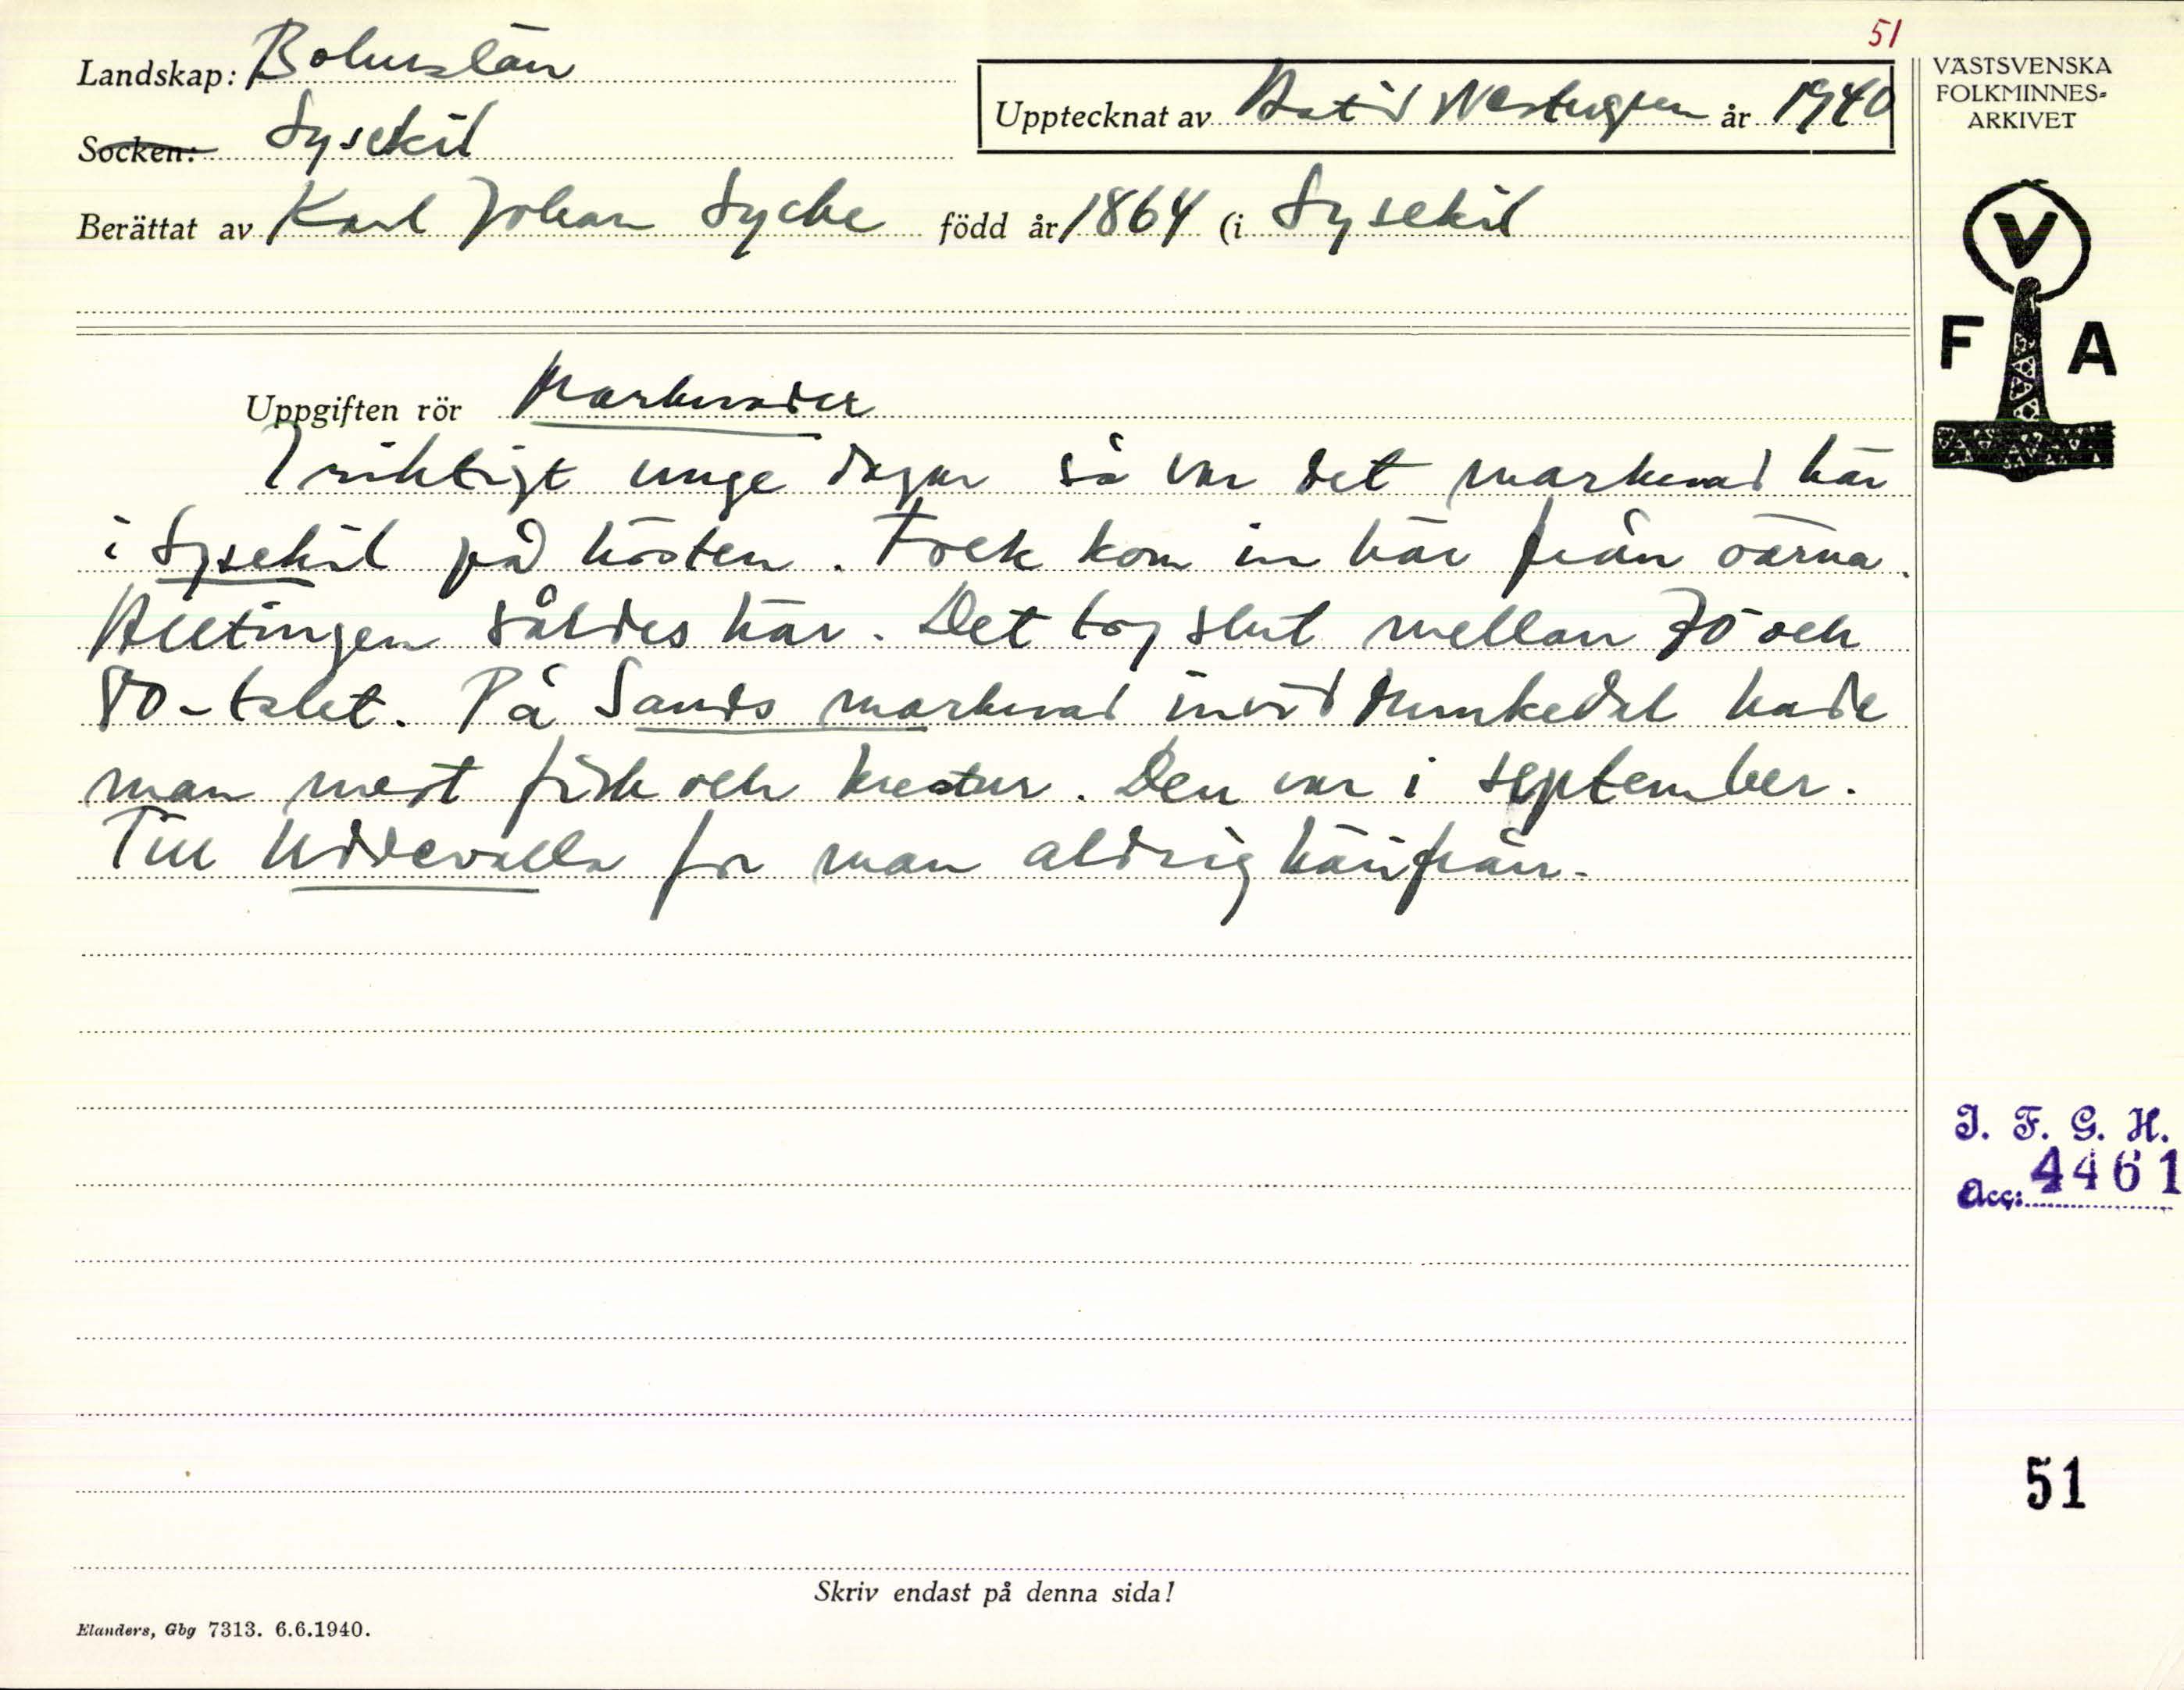 51
Landskap: Bohuslän
Socken: Lysekil
Upptecknat av Astrid år 1940
Berättat av Karl Johan Lycke född år 1864 (i Lysekil
VÄSTSVENSKA
FOLKMINNES-
ARKIVET
V
F A
Uppgiften rör Marknader
I riktigt unge dagar så var det marknad här
i Lysekil på hösten. Folk kom in här från öarna.
Alltingen såldes här. Det tog slut mellan 70 och
80-talet. På Sands marknad invid Munkedal hade
man mest fisk och kreatur. Den var i september.
Till Uddevalla for man aldrig härifrån.
I. F. G. H.
Acc: 4461
51
Skriv endast på denna sida!
Elanders, Gbg 7313. 6.6.1940.